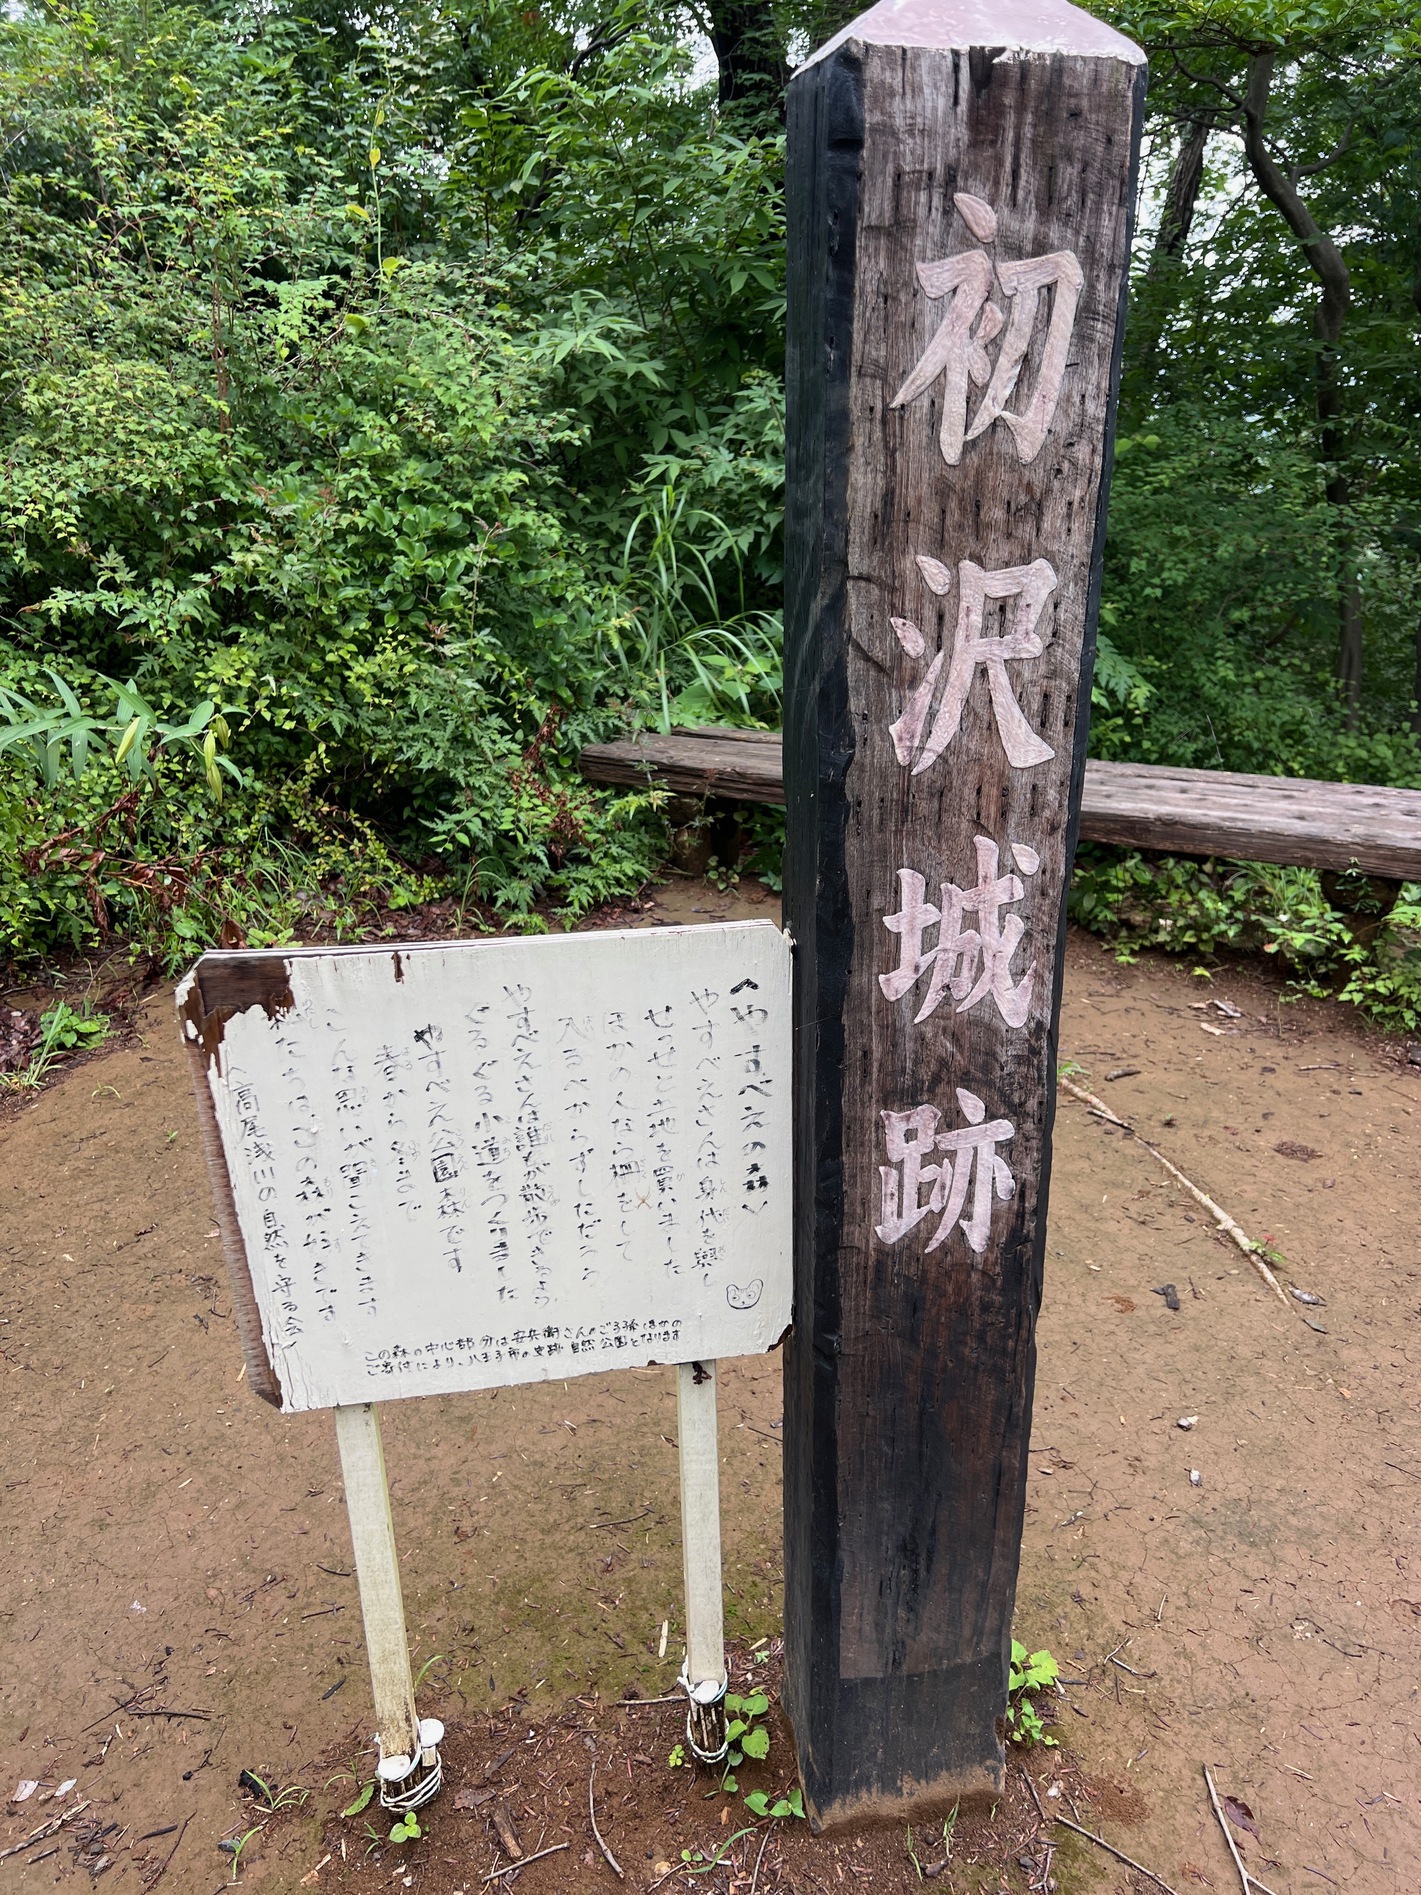 初沢城跡
〈やすべえの森〉
やすべえさんは身代を興し
せっせと土地を買いました
ほかの人なら柵をして
入るべからずしただろう
やすべえさんは誰もが散歩できるよう
ぐるぐる小道をつくりました
やすべえ公園森です
春から冬まで
こんな思いが聞こえてきます
私たちはこの森がだいすきです
〈高尾浅川の自然を守る会〉
この森の中心部分は安兵衛さんのご子孫ほかの
ご寄付により、八王子市の史跡自然公園となります